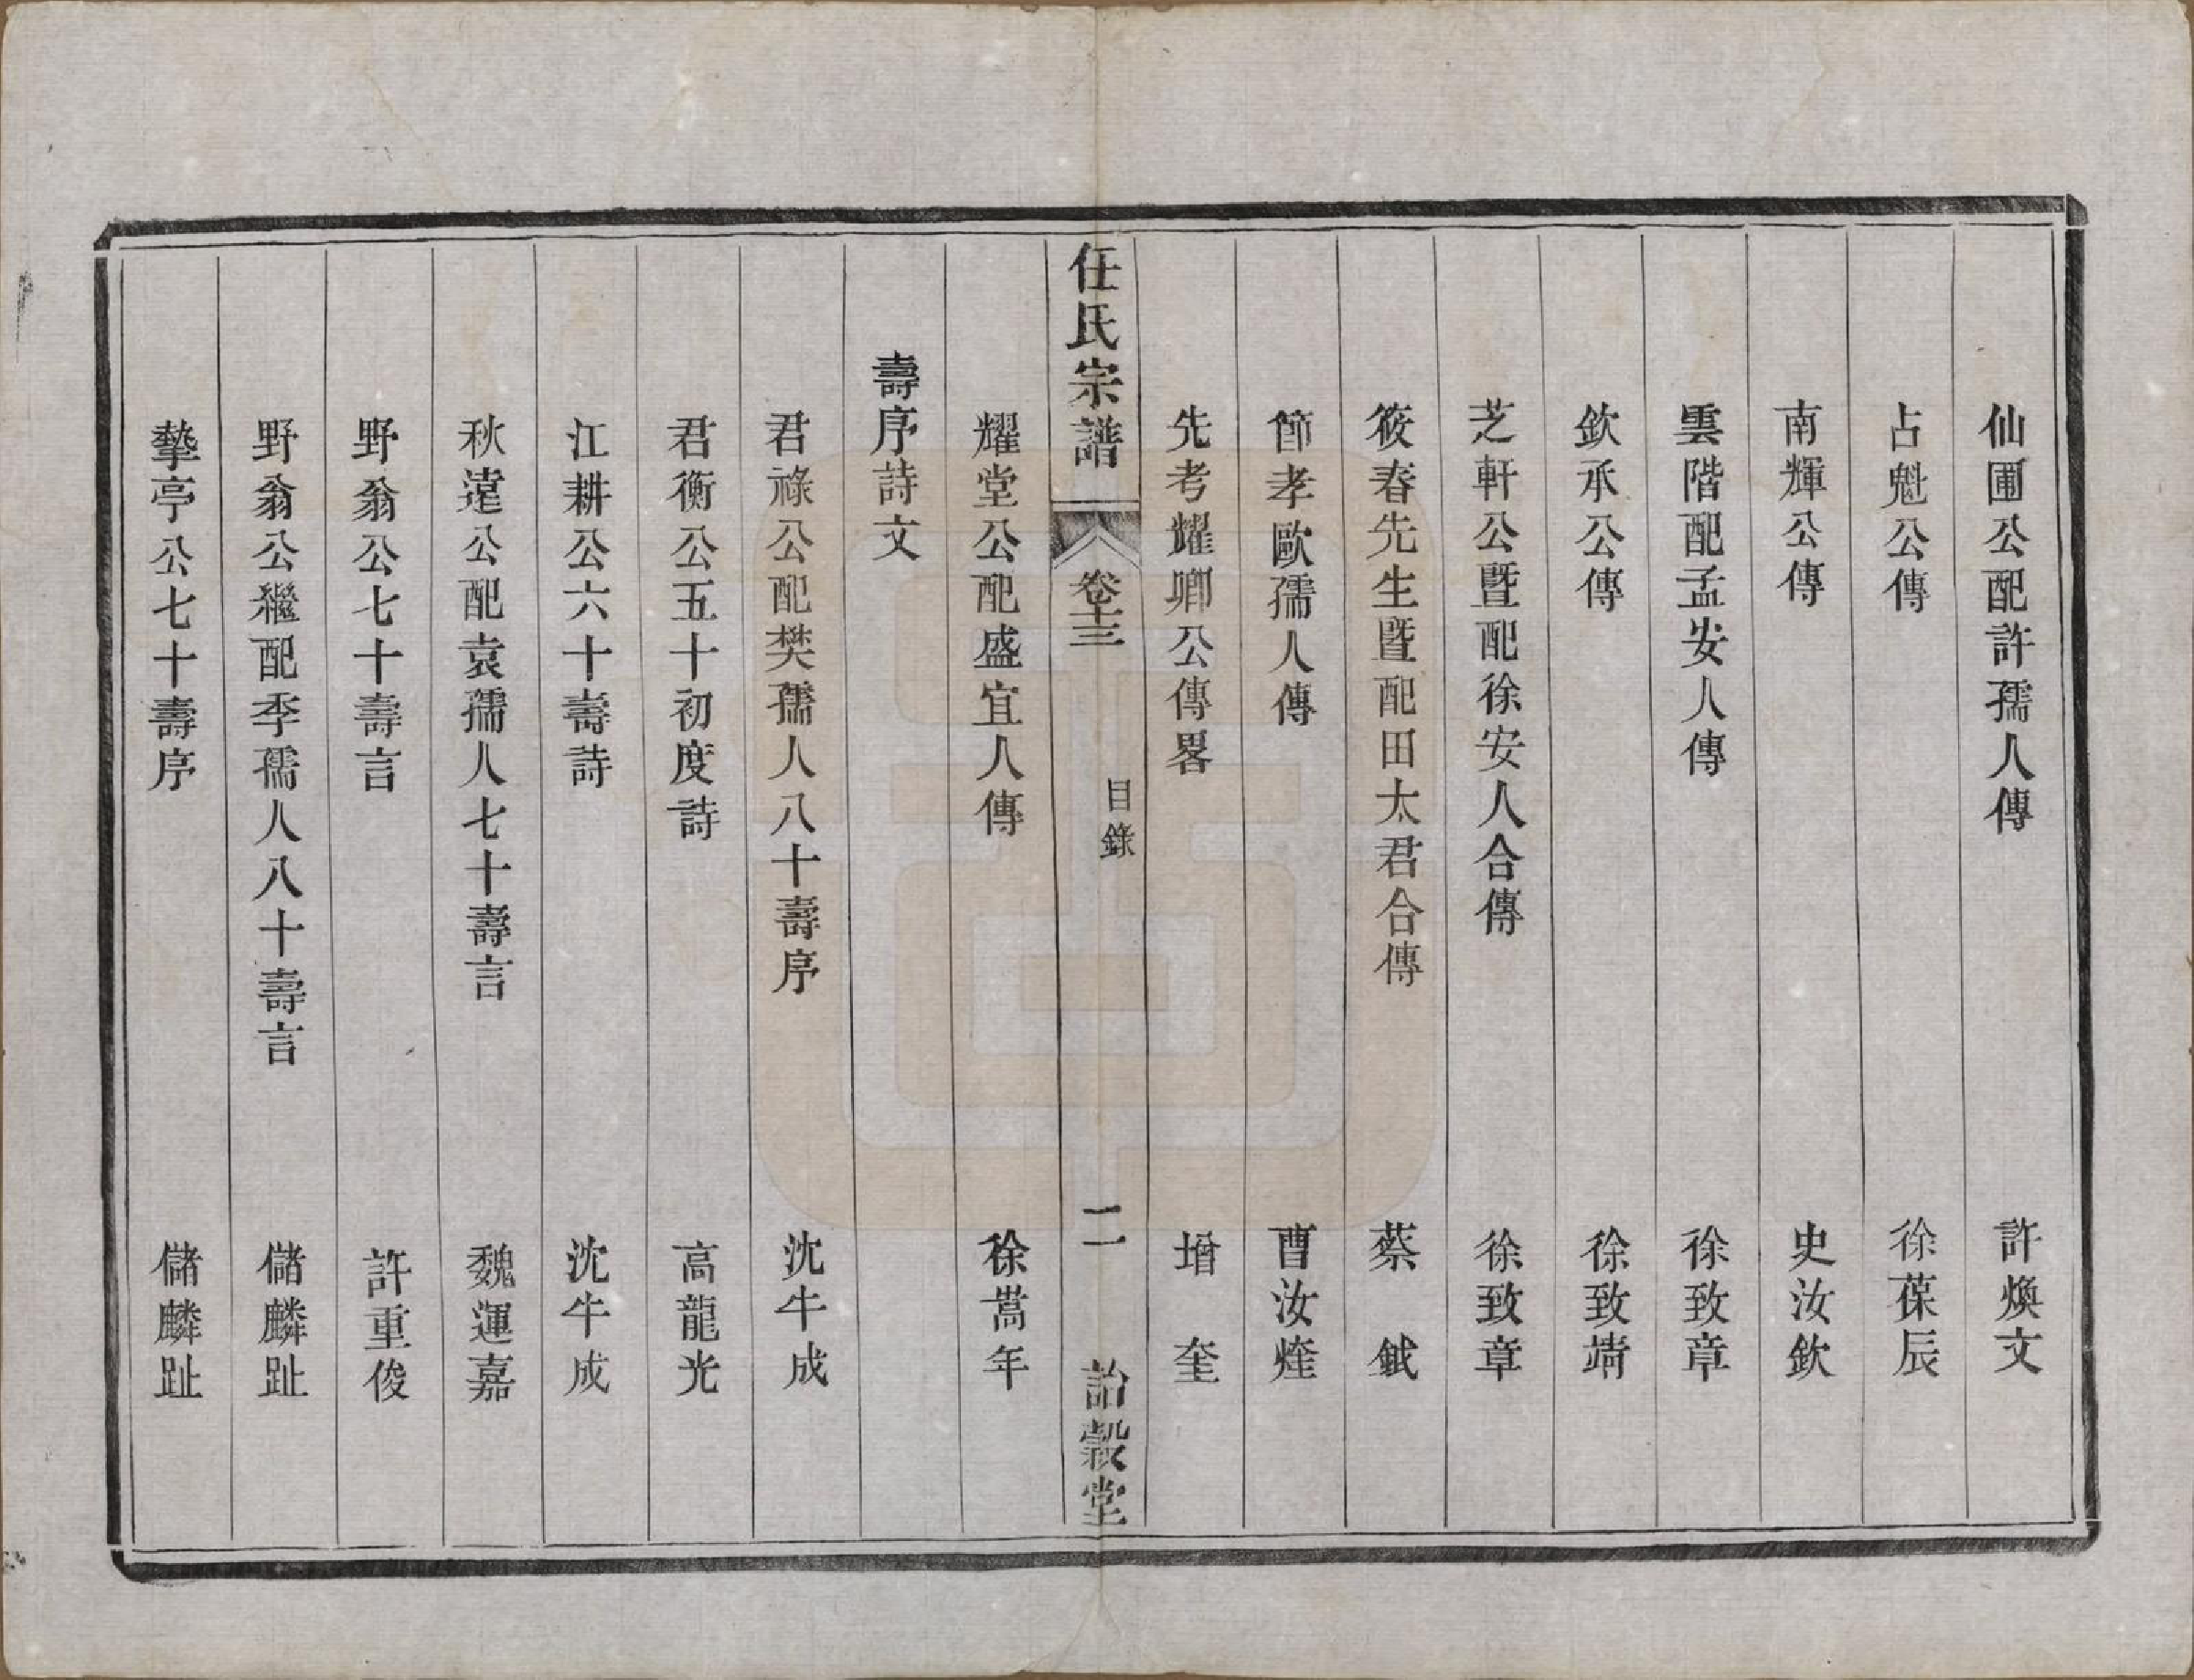 仙圃公配許孺人傳　許煥文
占魁公傳　徐葆辰
南輝公傳　史汝欽
雲階配孟安人傳　徐致章
欽承公傳　徐致靖
芝軒公暨配徐安人合傳　徐致章
筱春先生暨配田太君合傳　蔡鉞
節孝歐孺人傳　曹汝煃
先考耀卿公傳畧　增奎
任氏宗譜　卷十三　目錄　二　詒糓堂
耀堂公配盛宜人傳　徐嵩年
壽序詩文
君祿公配樊孺人八十壽序　沈牛成
君衡公五十初度詩　高龍光
江耕公六十壽詩　沈牛成
秋遠公配袁孺人七十壽言　魏運嘉
野翁公七十壽言　許重俊
野翁公繼配季孺人八十壽言　儲麟趾
摯亭公七十壽序　儲麟趾